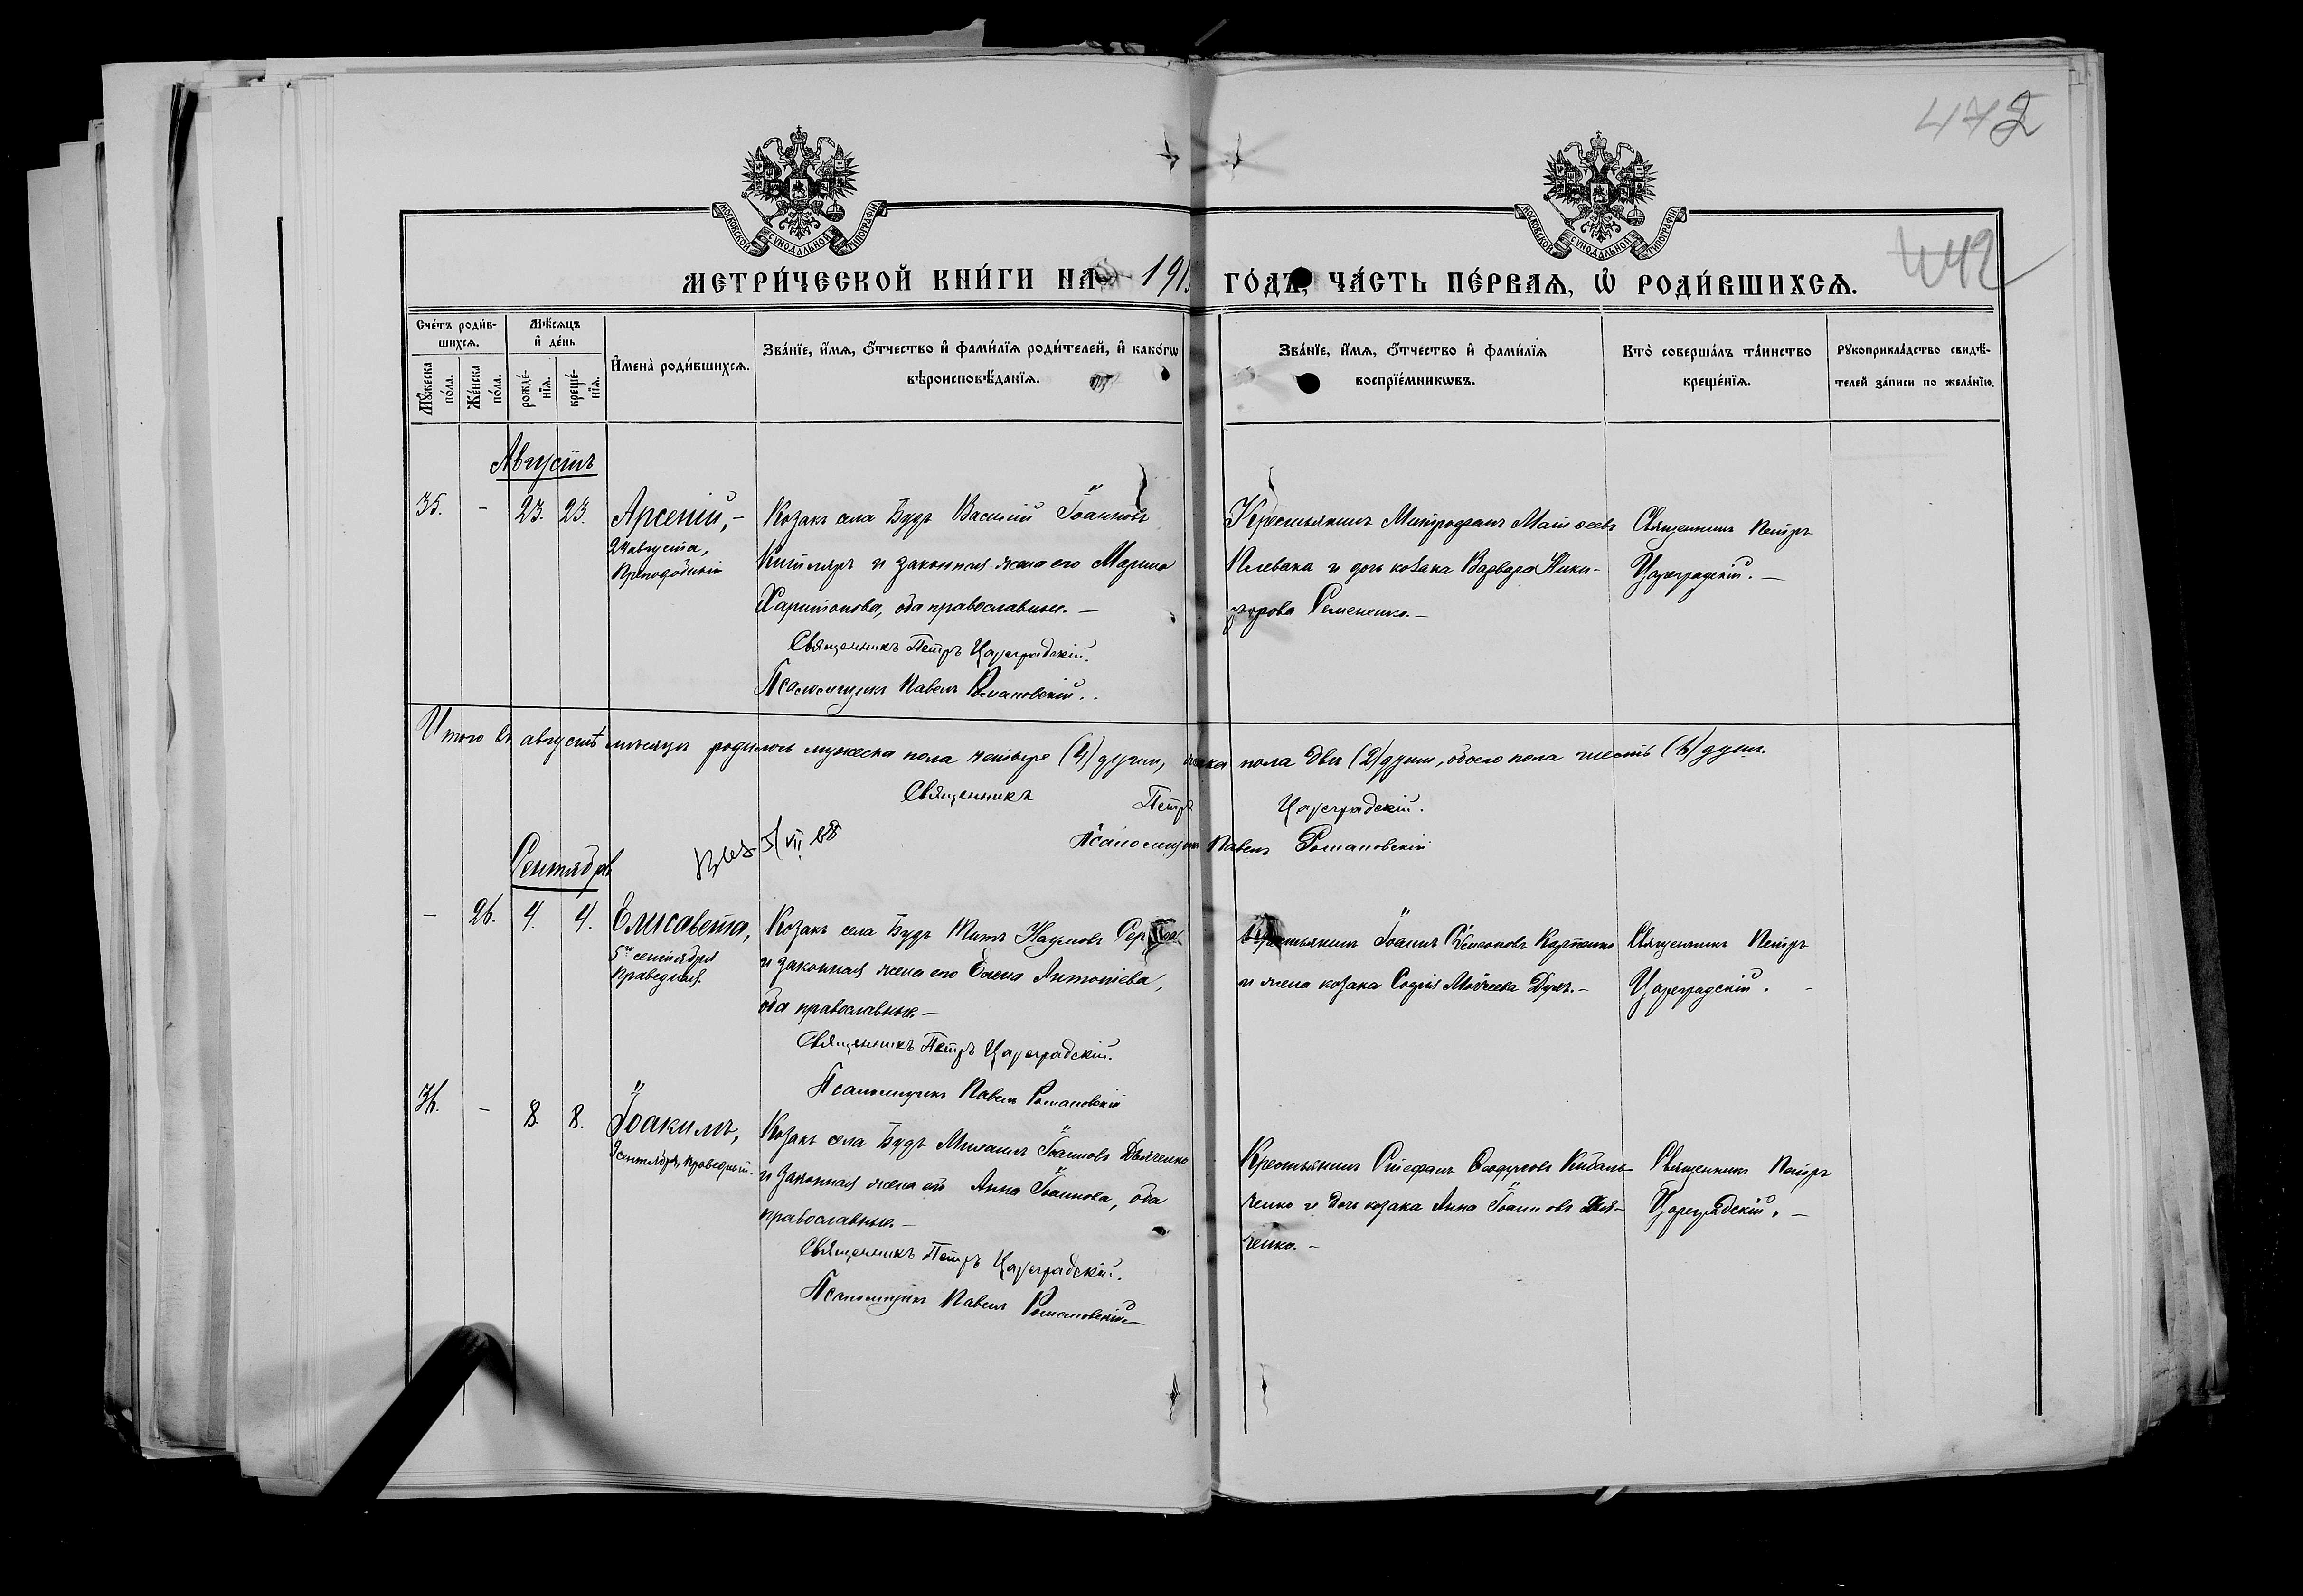 472
442
МОСКОВСКОЙ СѴНОДАЛЬНОЙ ТИПОГРАФІИ
МОСКОВСКОЙ СѴНОДАЛЬНОЙ ТИПОГРАФІИ
МЕТРИ́ЧЕСКОЙ КНИ́ГИ НА 191 ГО́ДЪ, ЧА́СТЬ ПЕ́РВАѦ, Ѡ҆ РОДИ́ВШИХСѦ.
Сче́тъ роди́в-
шихсѧ.
Мꙋ́жеска по́ла.
Же́нска по́ла.
Мѣ́сѧцъ
и҆ де́нь
рожде́-
нїѧ.
креще́-
нїѧ.
И҆мена̀ роди́вшихсѧ.
Зва́нїе, и҆́мѧ, ѻ҆́тчество и҆ фами́лїѧ роди́телей, и҆ како́гѡ
вѣроисповѣ́данїѧ.
Зва́нїе, и҆́мѧ, ѻ҆́тчество и҆ фами́лїѧ
воспрїе́мникѡвъ.
Кто̀ соверша́лъ та́инство
креще́нїѧ.
Рꙋкоприкла́дство свидѣ́-
телей за́писи по жела́нїю.
Августъ
35. - 23. 23. Арсеній, -
24 августа,
Преподобный
Козакъ села Будъ Василій Іоанновъ
и законная жена его Марина
Харитонова, оба православные. -
Священникъ Петръ Цареградскій.
Псаломщикъ Павелъ Романовскій.
Крестьянинъ Митрофанъ Матѳеевъ
Плевака и дочь козака Варвара Ники-
форова Семененко. -
Священникъ Петръ
Цареградскій. -
Итого въ августѣ мѣсяцѣ родилось мужеска пола четыре (4) души, женска пола двѣ (2) души, обоего пола шесть (6) душъ.
Священникъ Петръ Цареградскій.
Псаломщикъ Павелъ Романовскій
Сентябрь
- 26. 4. 4. Елисавета,
5го сентября
Праведная.
Козакъ села Будъ Титъ Наумовъ
и законная жена его Елена Антоніева,
оба православные. -
Священникъ Петръ Цареградскій.
Псаломщикъ Павелъ Романовскій
Крестьянинъ Іоаннъ Симеоновъ Карпенко
и жена козака Софія Моисеева -
Священникъ Петръ
Цареградскій. -
36. - 8. 8. Іоакимъ,
9 сентября, праведный.
Козакъ села Будъ Михаилъ Іоанновъ Дьяченко
и законная жена его Анна Іоаннова, оба
православные. -
Священникъ Петръ Цареградскій.
Псаломщикъ Павелъ Романовскій
Крестьянинъ Стефанъ Кибаль-
ченко и дочь козака Анна Іоаннова Дья-
ченко. -
Священникъ Петръ
Цареградскій. -